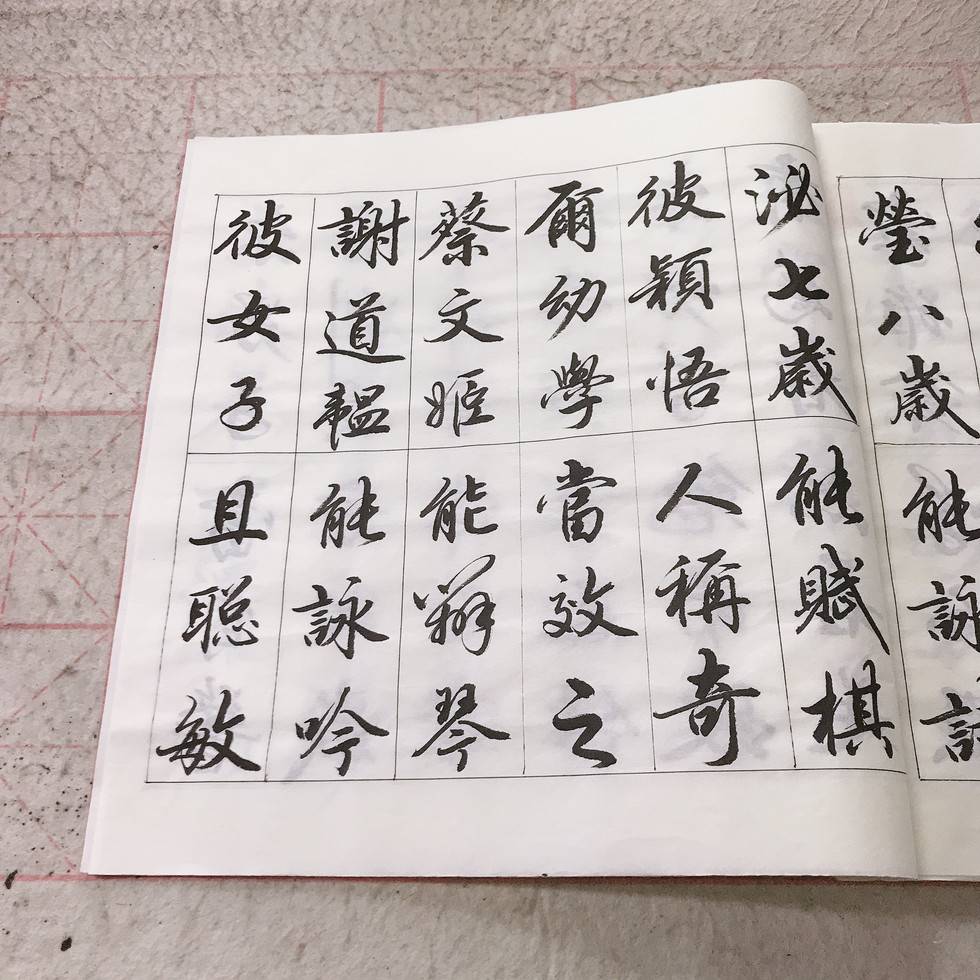 瑩八歲能詠詩
泌七歲能賦棋
彼穎悟人稱奇
爾幼學當效之
蔡文姬能辨琴
謝道韞能詠吟
彼女子且聰敏